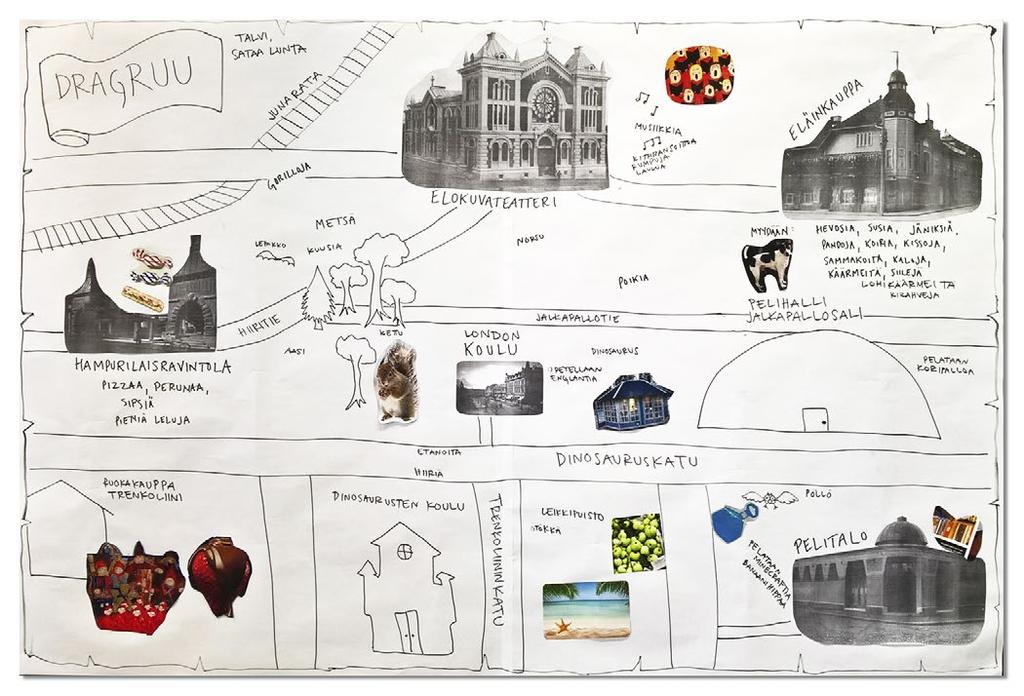 DRAGRUU
TALVI,
SATAA LUNTA
JUNARATA
GORILLOJA
ELOKUVATEATTERI
MUSIIKKIA
KITARANSOITTOA
RUMPUJA
LAULUA
ELÄINKAUPPA
METSÄ
KUUSIA
LEPAKKO
NORSU
POIKIA
MYYDÄÄN:
HEVOSIA, SUSIA, JÄNIKSIÄ,
PANDOJA, KOIRIA, KISSOJA,
SAMMAKOITA, KALOJA,
KÄÄRMEITÄ, SIILEJÄ
LOHIKÄÄRMEITÄ
KIRAHVEJA
PELIHALLI
JALKAPALLOSALI
HIIRITIE
JALKAPALLOTIE
HAMPURILAISRAVINTOLA
PIZZAA, PERUNAA,
SIPSIÄ
PIENIÄ LELUJA
AASI
KETU
LONDON
KOULU
OPETELLAAN
ENGLANTIA
DINOSAURUS
PELATAAN
KORIPALLOA
ETANOITA
HIIRIÄ
DINOSAURUSKATU
RUOKAKAUPPA
TRENKOLIINI
DINOSAURUSTEN KOULU
TRENKOLIININKATU
LEIKKIPUISTO
PÖLLÖ
PELATAAN
MINECRAFTIA
BANAANIHIPPAA
PELITALO